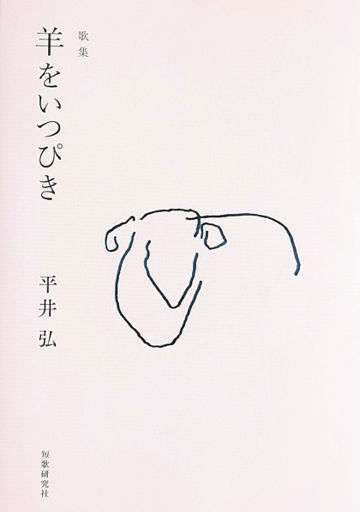 歌集
羊をいつぴき
平井 弘
短歌研究社